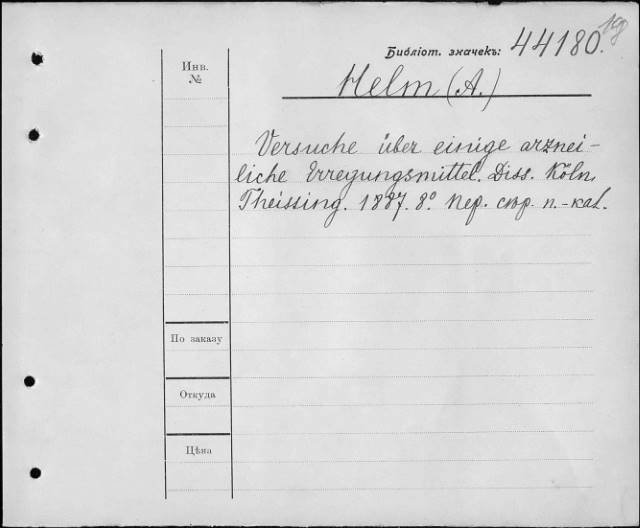 Библіот. значекъ: 44180.
Инв.
№
Helm (A.)
Versuche über einige arznei-
liche Erregungsmittel. Diss. Köln,
Theissing. 1887. 8º. Пер. стр. п.-кат.
По заказу
Откуда
Цѣна